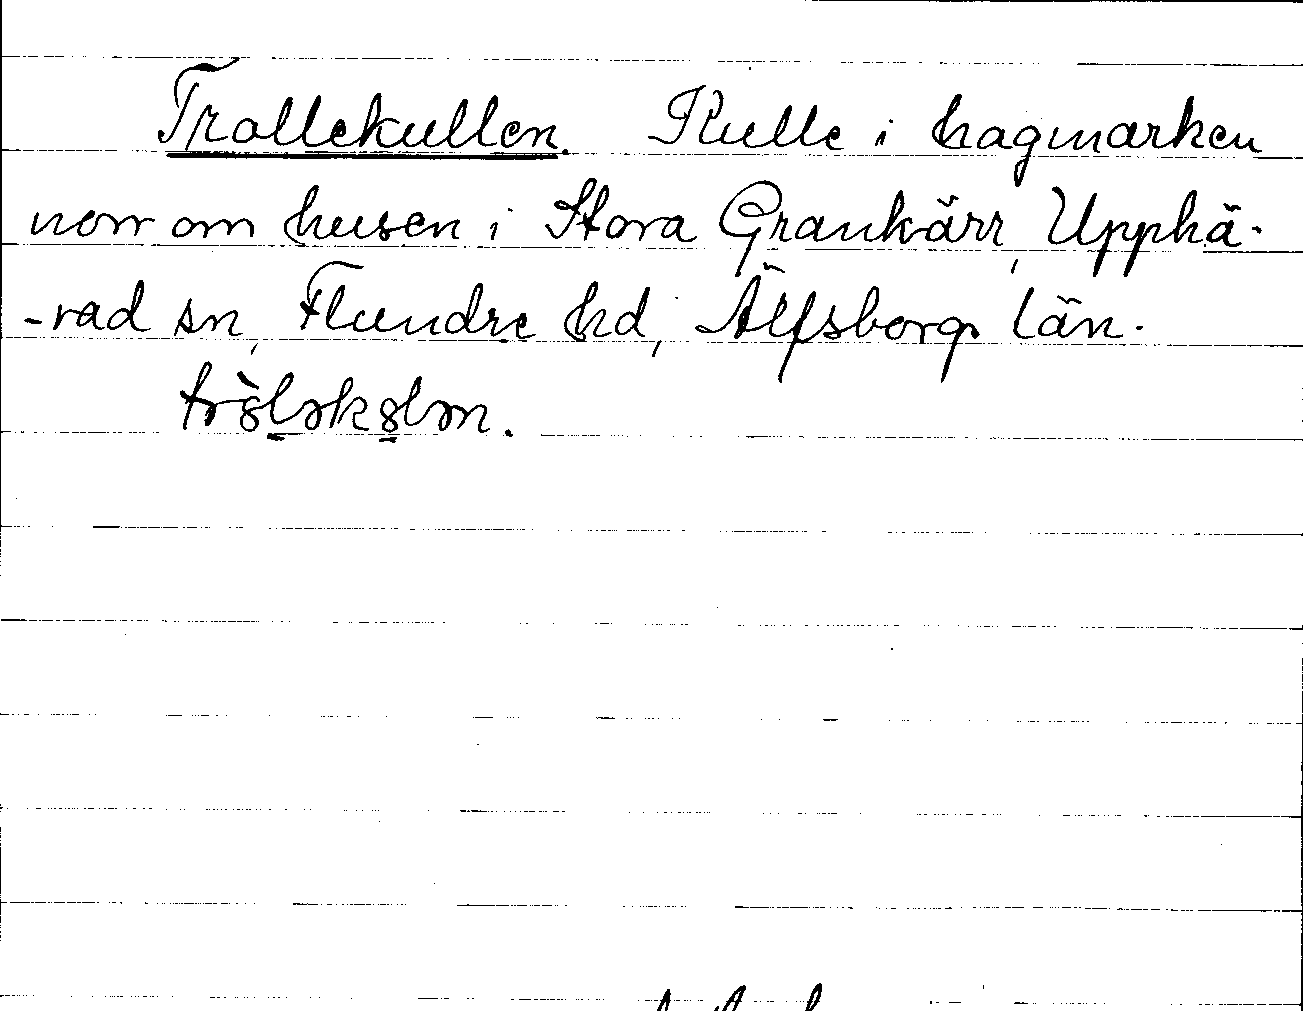 Trollekullen. Kulle i hagmarken
norr om husen i Stora Grankärr, Upphä-
-rad sn, Flundre hd, Älfsborgs län.